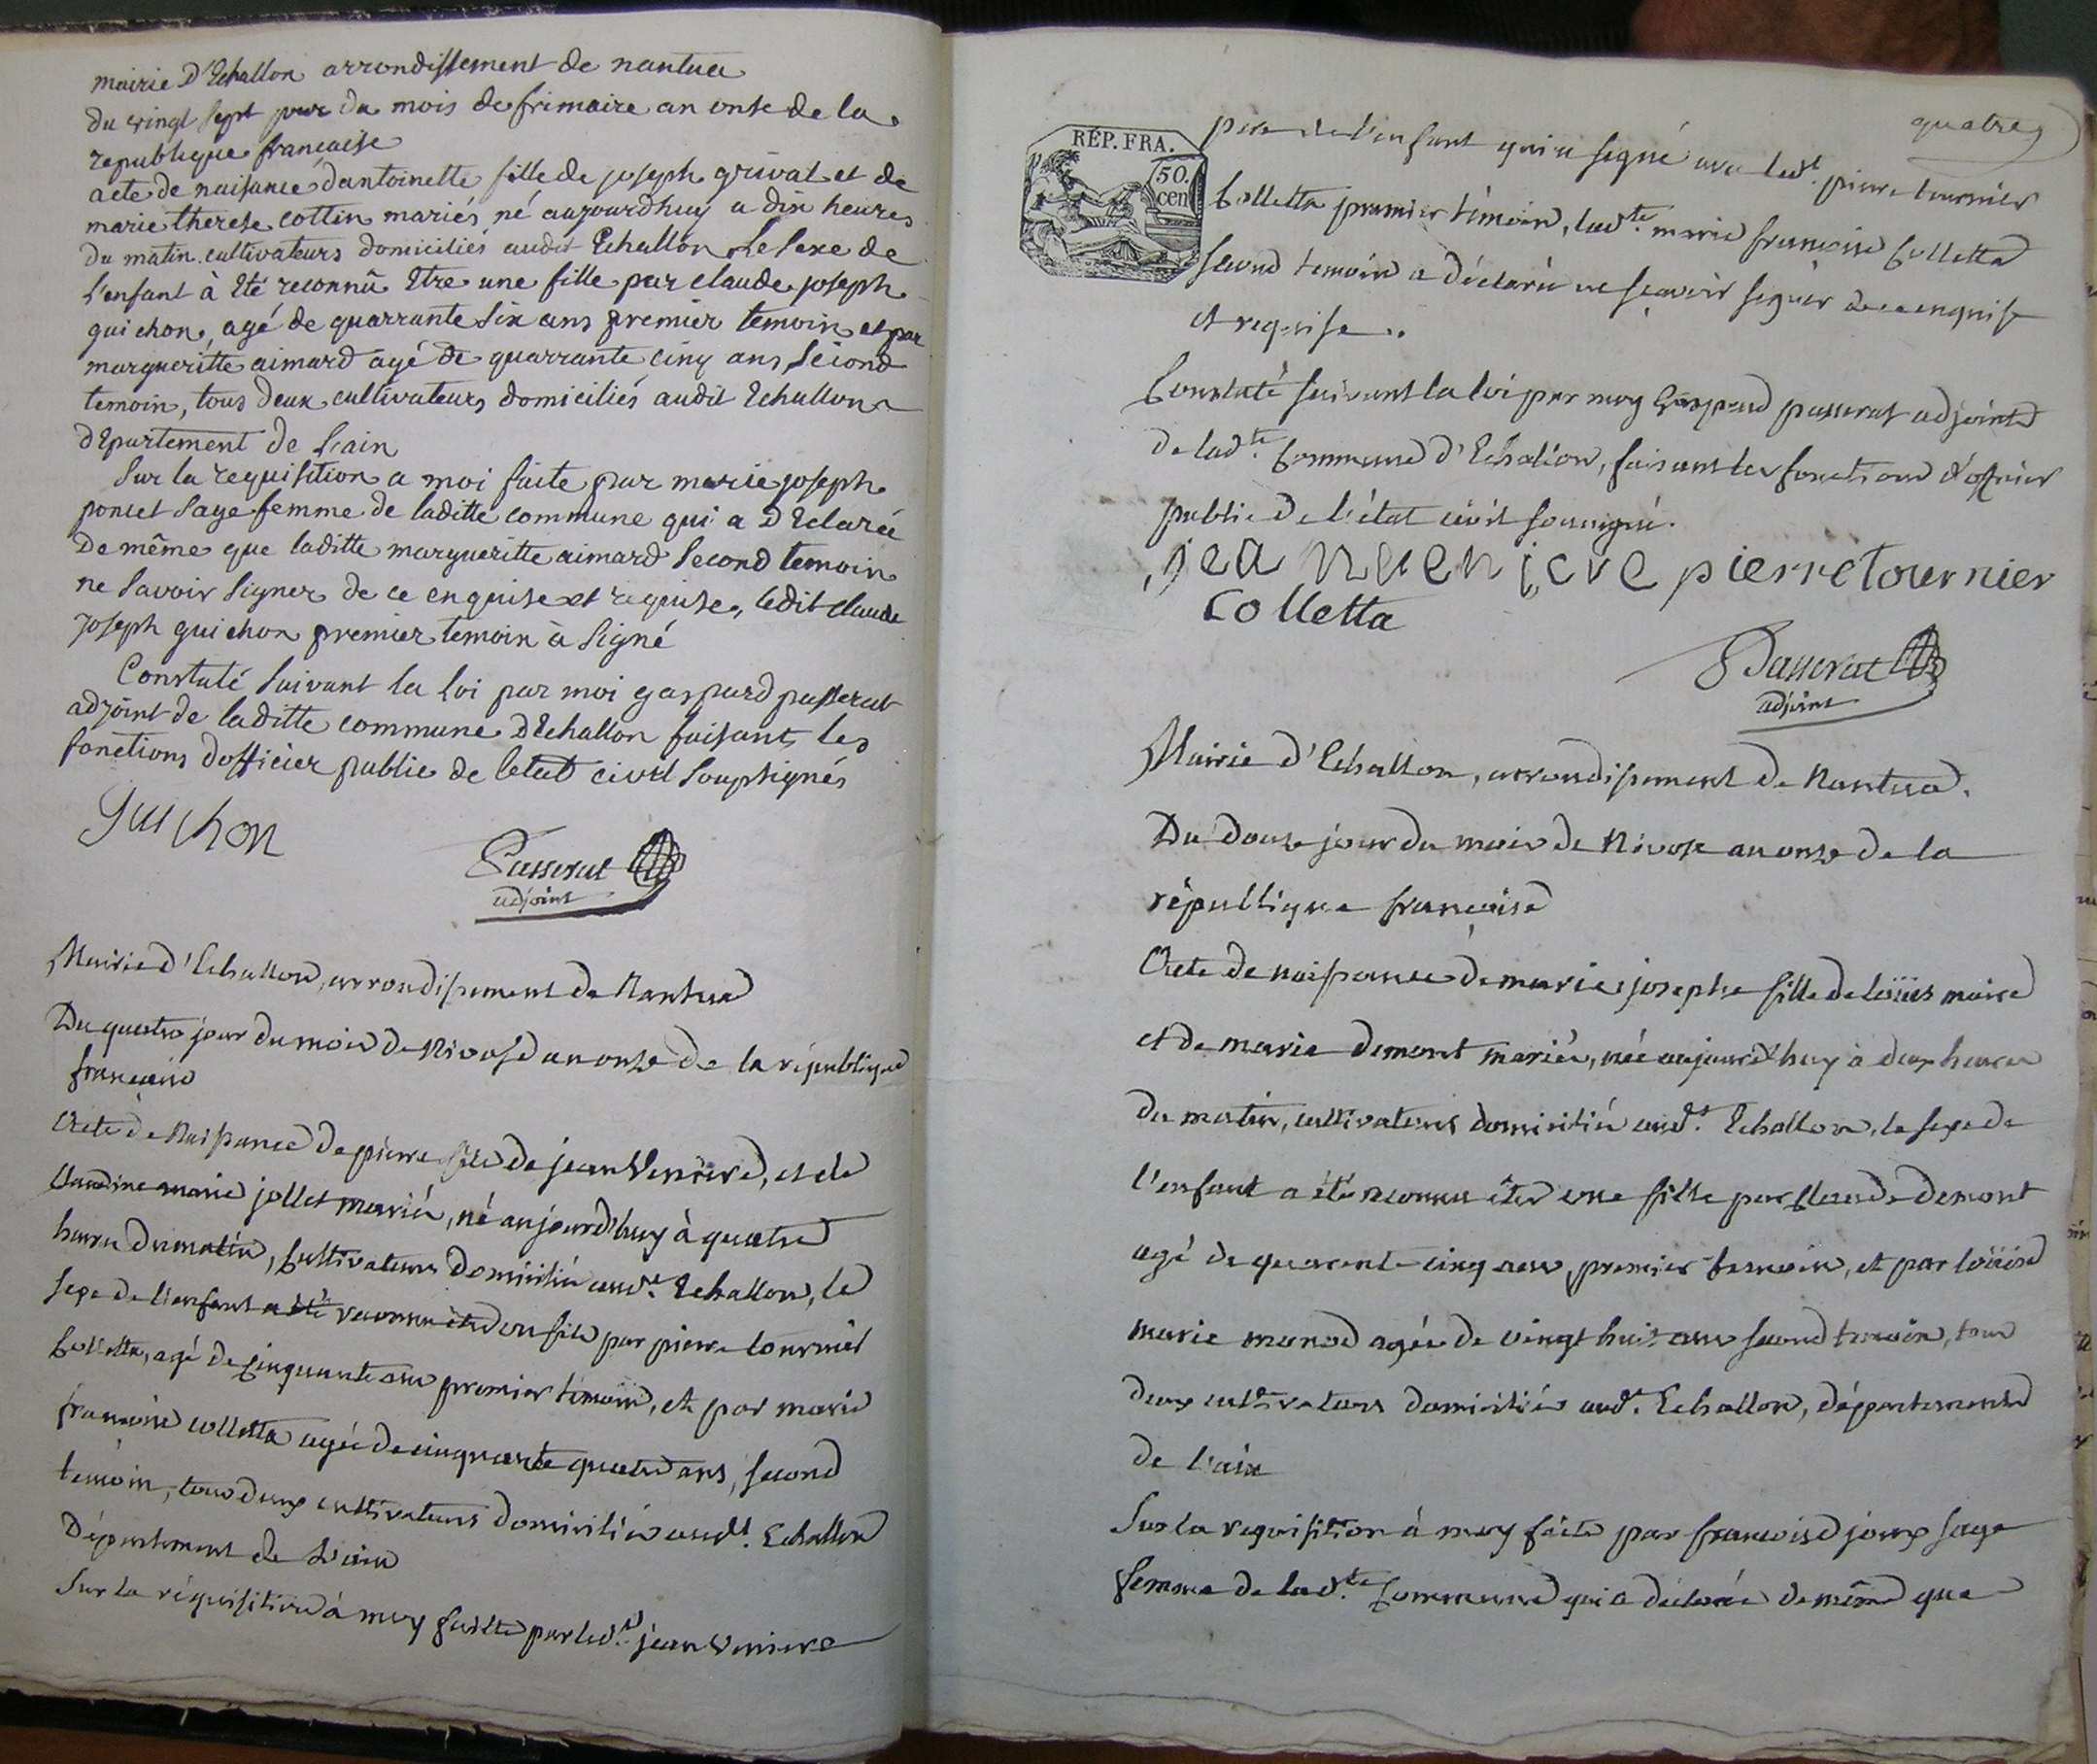 mairie D'Echallon arrondissement de nantua
du vingt sept jour du mois de frimaire an onse de la
republique francaise
acte de naisance d'antoinette fille de joseph grivat et de
marie therese cottin mariés né aujourdhuy a dix heures
du matin cultivateurs domiciliés audit Echallon Le sexe de
l'enfant à été reconnû Etre une fille par claude joseph
guichon, agé de quarrante six ans premier temoin et par
margueritte aimard agé de quarrante cinq ans Second
temoin, tous deux cultivateurs domiciliés audit Echallon
département de l'ain
Sur la requisition a moi faite par marie joseph
poncet sage femme de laditte commune qui a déclarée
de même que laditte margueritte aimard second temoin
ne savoir signer de ce enquise et requise, ledit claude
joseph guichon premier temoin à signé
Constaté suivant la loi par moi gaspard passerat
adjoint de laditte commune d'Echallon faisant les
fonctions d'officier public de letat civil soupsignés
Guichon
Passerat
adjoint
Mairie d'Echallon, arrondissement de Nantua
Du quatre jour du mois de Nivose an onze de la république
francaise
Acte de Naissance de pierre fils de jean Veniere, et de
Claudine marie jollet mariés, né aujourd'huy à quatre
heures du matin, Cultivateurs domiciliés aud.t Echallon, le
sexe de l'enfant a été reconnu être un fils par pierre tournier
Colletta, agé de cinquante ans premier témoin, et par marie
francoise colletta agée de cinquante quatre ans, second
temoin, tous deux cultivateurs domiciliés aud.t Echallon
Département de L'ain
Sur la réquisition à moy faitte par led.t jean Veniere
quatre
RÉP. FRA.
50.
cen
pere de l'enfant qui a signé avec led.t pierre tournier
Colletta premier témoin, lad.te marie francoise Colletta
second temoin a déclaré ne sçavoir signer de ce enquise
et requise..
Constaté suivant la loi par moy Gaspard passerat adjoint
de lad.te Commune d'Echallon, faisant les fonctions d'officier
public de l'état civil soussigné.
jea nuenicre pierre tournier
colletta
Passerat
adjoint
Mairie d'Echallon, arrondissement de Nantua.
Du douze jour du mois de Nivose an onze de la
république francaise
Acte de naissance de marie josephe fille de loüis maire
et de marie demont mariés, née aujourd'huy à deux heures
du matin, cultivateurs domiciliés aud.t Echallon, le sexe de
l'enfant a été reconnu être une fille par Claude demont
agé de quarente cinq ans, premier temoin, et par loüise
marie monod agée de vingt huit ans second temoin, tous
deux cultivateurs domiciliés aud.t Echallon, département
de l'ain
Sur la requisition à moy faite par francoise joux sage
femme de lad.te Commune qui a déclarée de même que